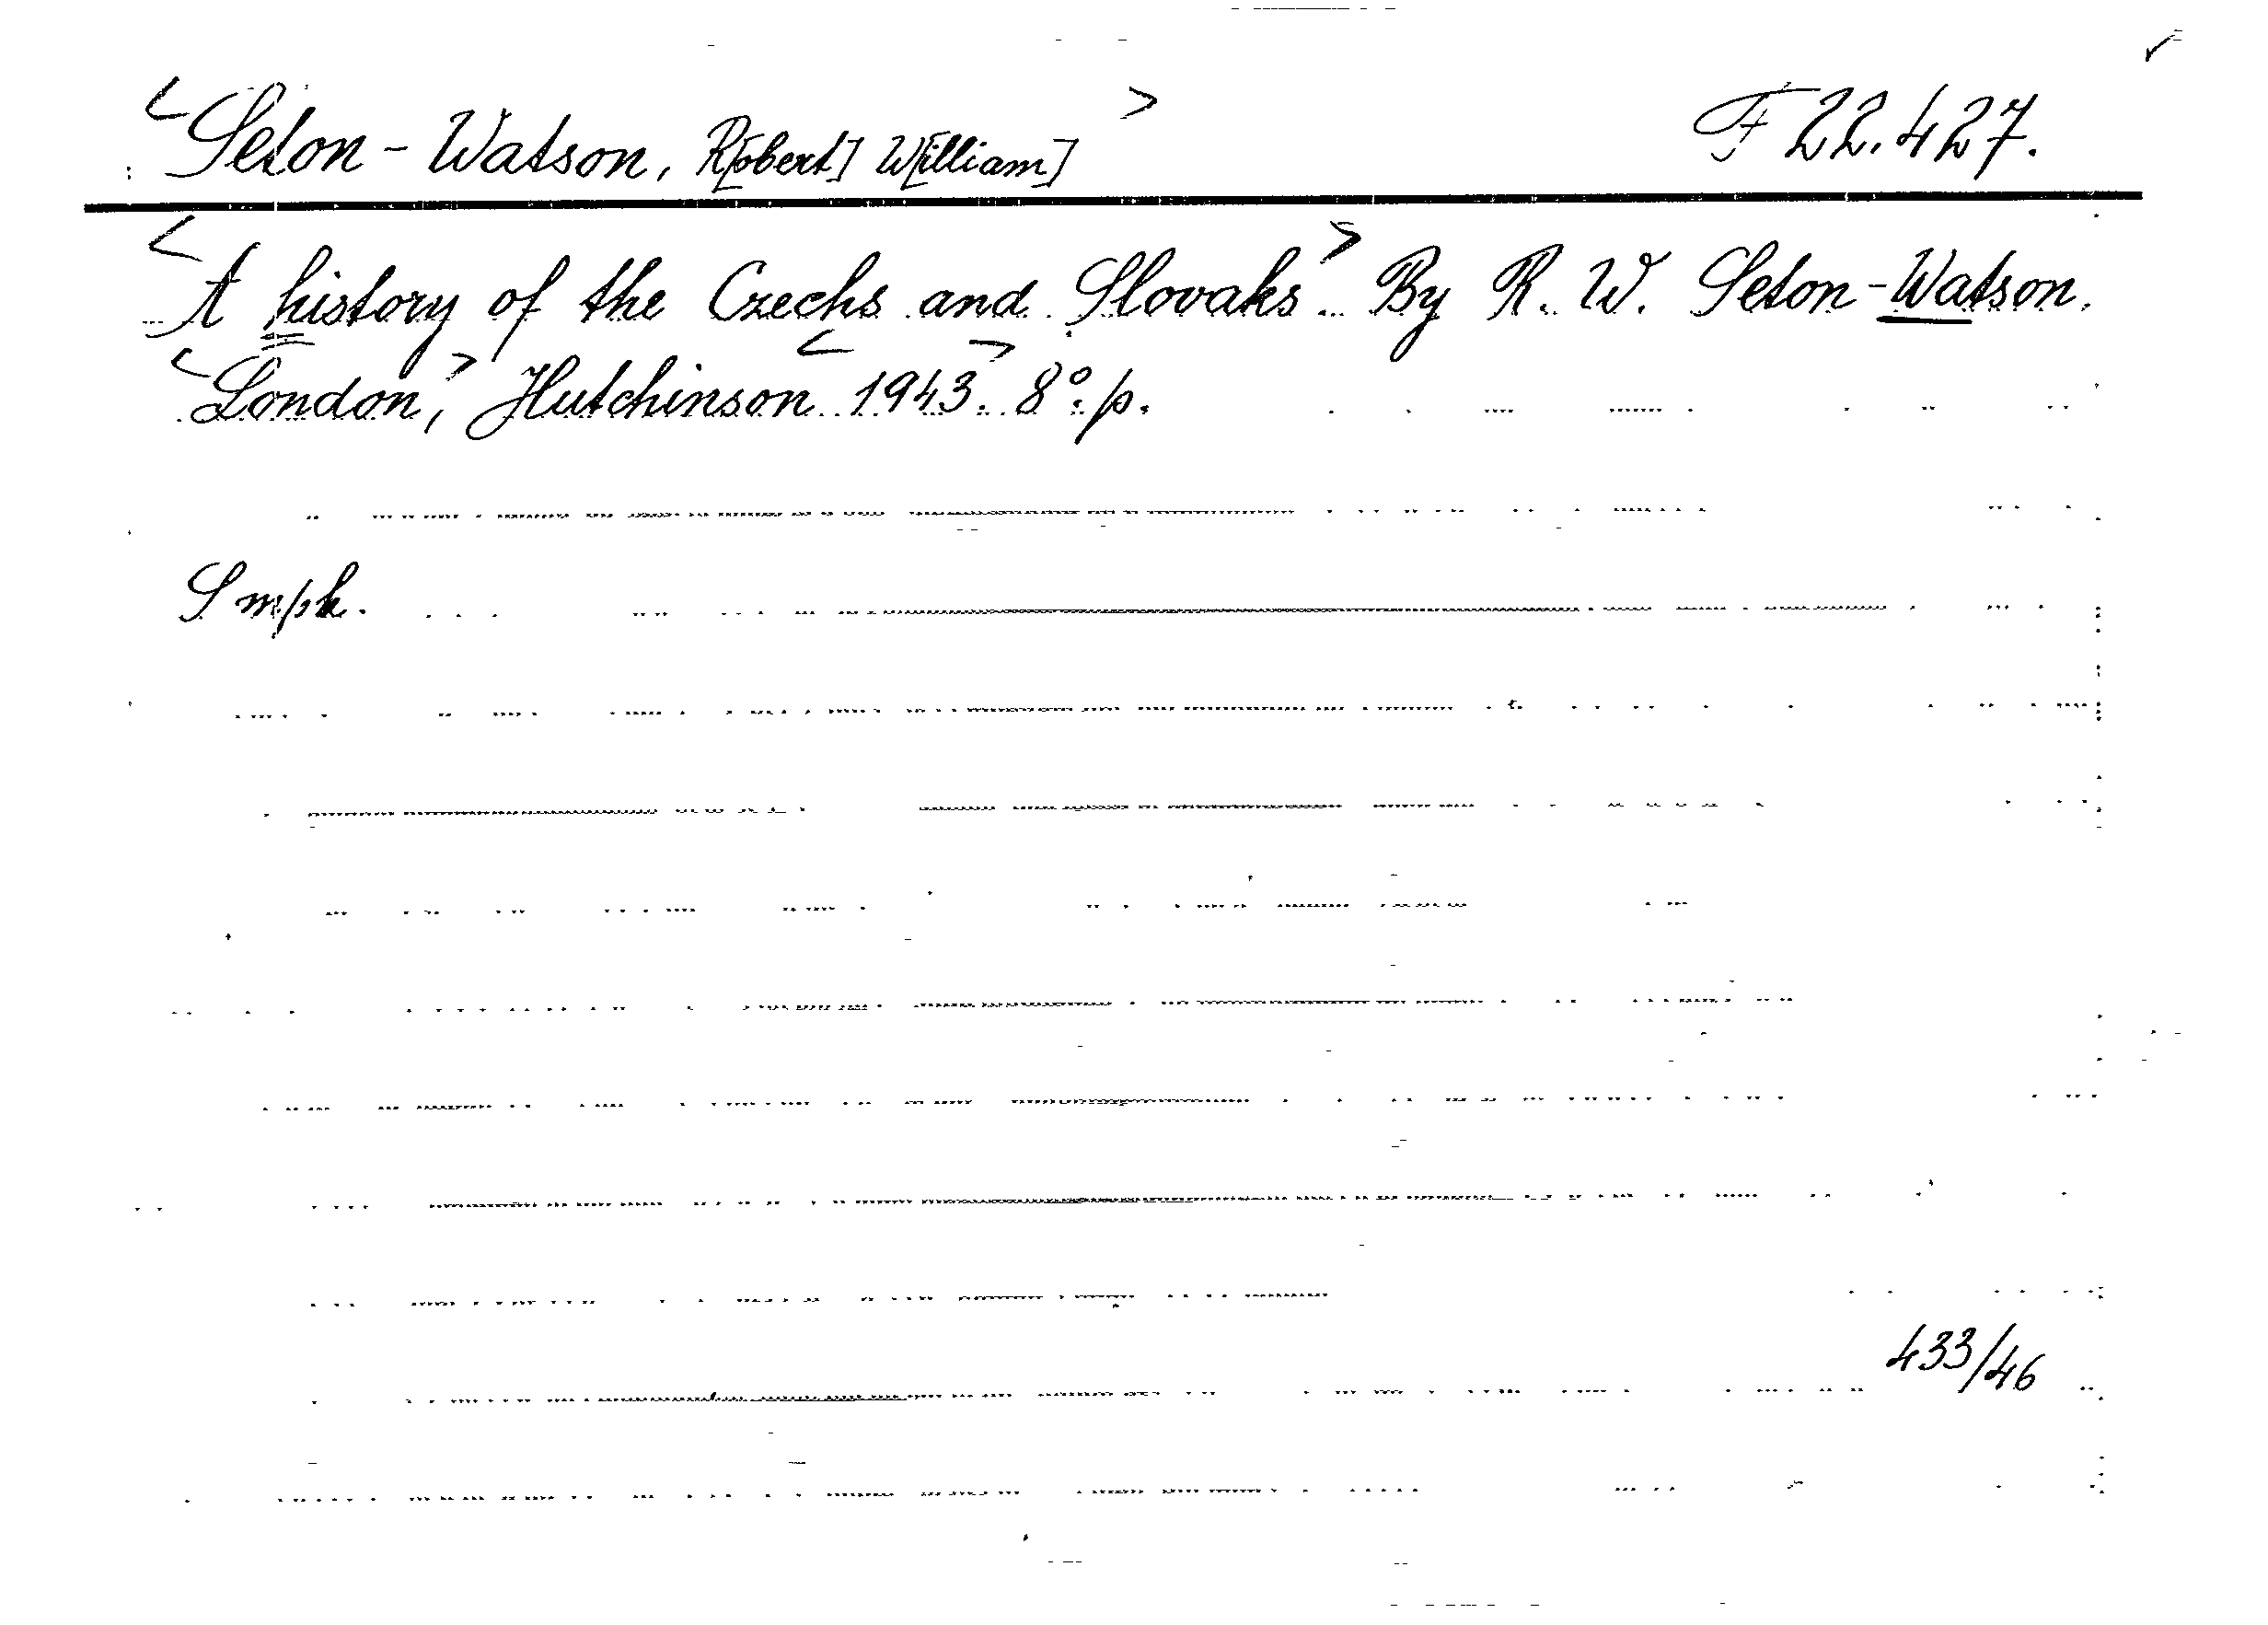 <Seton-Watson, R[obert] W[illiam]> F 22.427.
<A history of the Czechs and Slovaks.> By R. W. Seton-Watson.
<London,> Hutchinson <1943.> 8°. p.
S mpk.
433/46